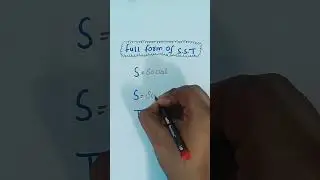 full form of S.S.T
S = Social
S =
T